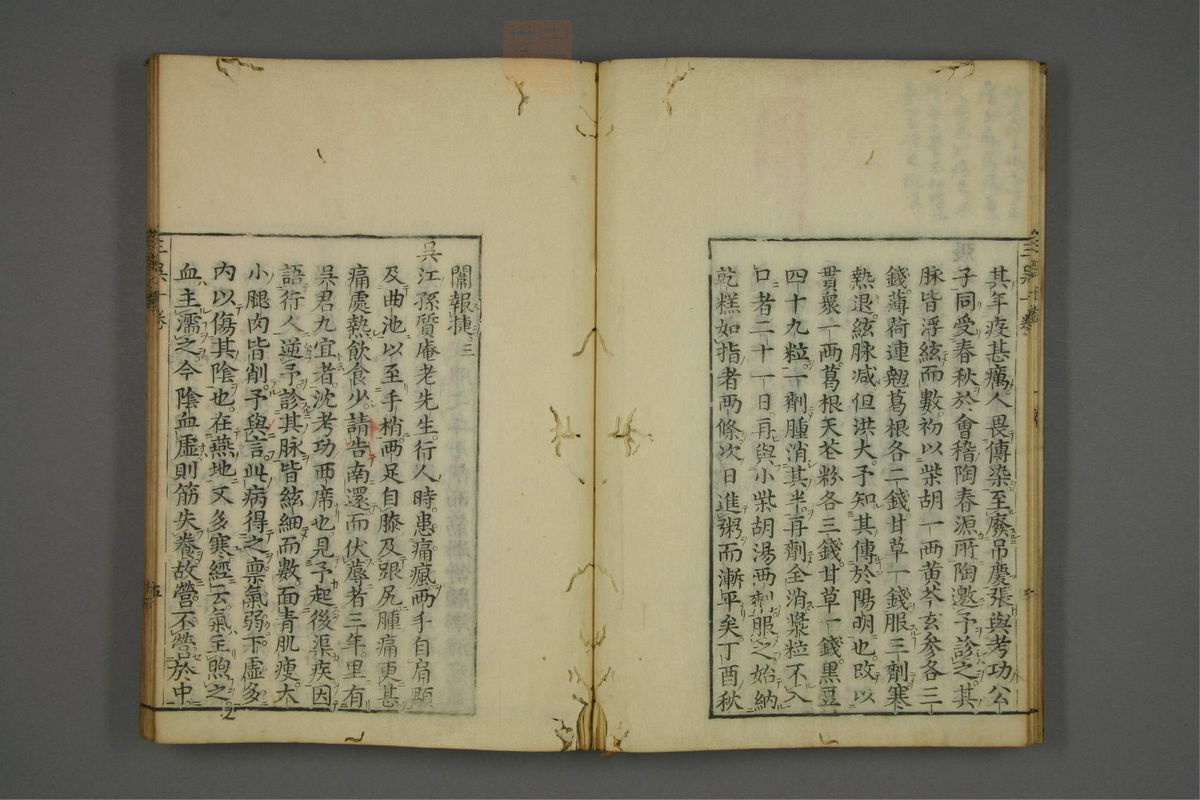 其年疫甚癘人畏傳染至廢吊慶張與考功公
子同受春秋於會稽陶春源所陶邀予診之其
脉皆浮絃而數初以柴胡一兩黄芩玄参各三
錢薄荷連翹葛根各二錢甘草一錢服三劑寒
熱退絃脉减但洪大予知其傳於陽明也改以
貫衆一兩葛根天花粉各三錢甘草一錢黒豆
四十九粒一劑腫消其半再劑全消漿粒不入
口者二十一日再與小柴胡湯兩劑服之始納
乾糕如指者两條次日進粥而漸平矣丁酉秋
闈報捷三
吳江孫質庵老先生行人時患痛瘋两手自肩顒
及曲池以至手梢两足自膝及跟尻腫痛更甚
痛處熱飲食少請告南還而伏蓐者三年里有
吳君九宜者沈考功西席也見予起後渠疾因
語行人逆予診其脉皆絃細而數面青肌瘦大
小腿肉皆削予與言此病得之禀氣弱下虛多
内以傷其陰也在燕地又多寒經云氣主煦之
血主濡之今陰血虛則筋失養故營不營於中
三吳 一卷